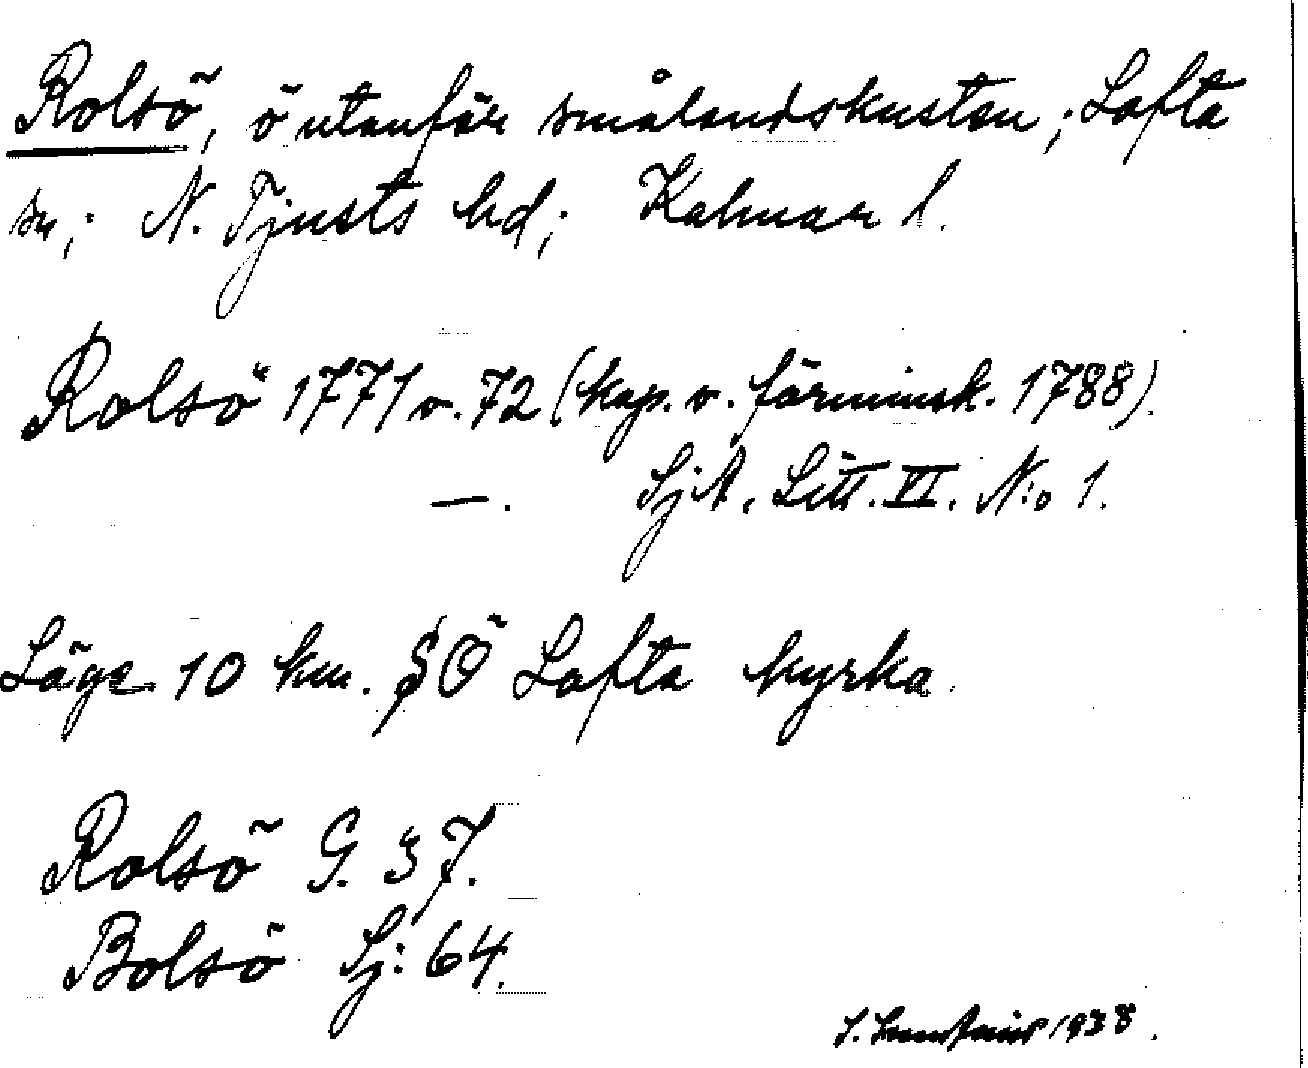 Rolsö, ö utanför smålandskusten; Lofta
sn; N. Tjusts hd; Kalmar l.
Rolsö 1771 o. 72 (kop. o. förminsk. 1788).
—. SjA, Litt. VI. N:o 1.
Läge 10 km. Ö Lofta kyrka.
Rolsö G. 37.
Bolsö Sj: 64.
1938.